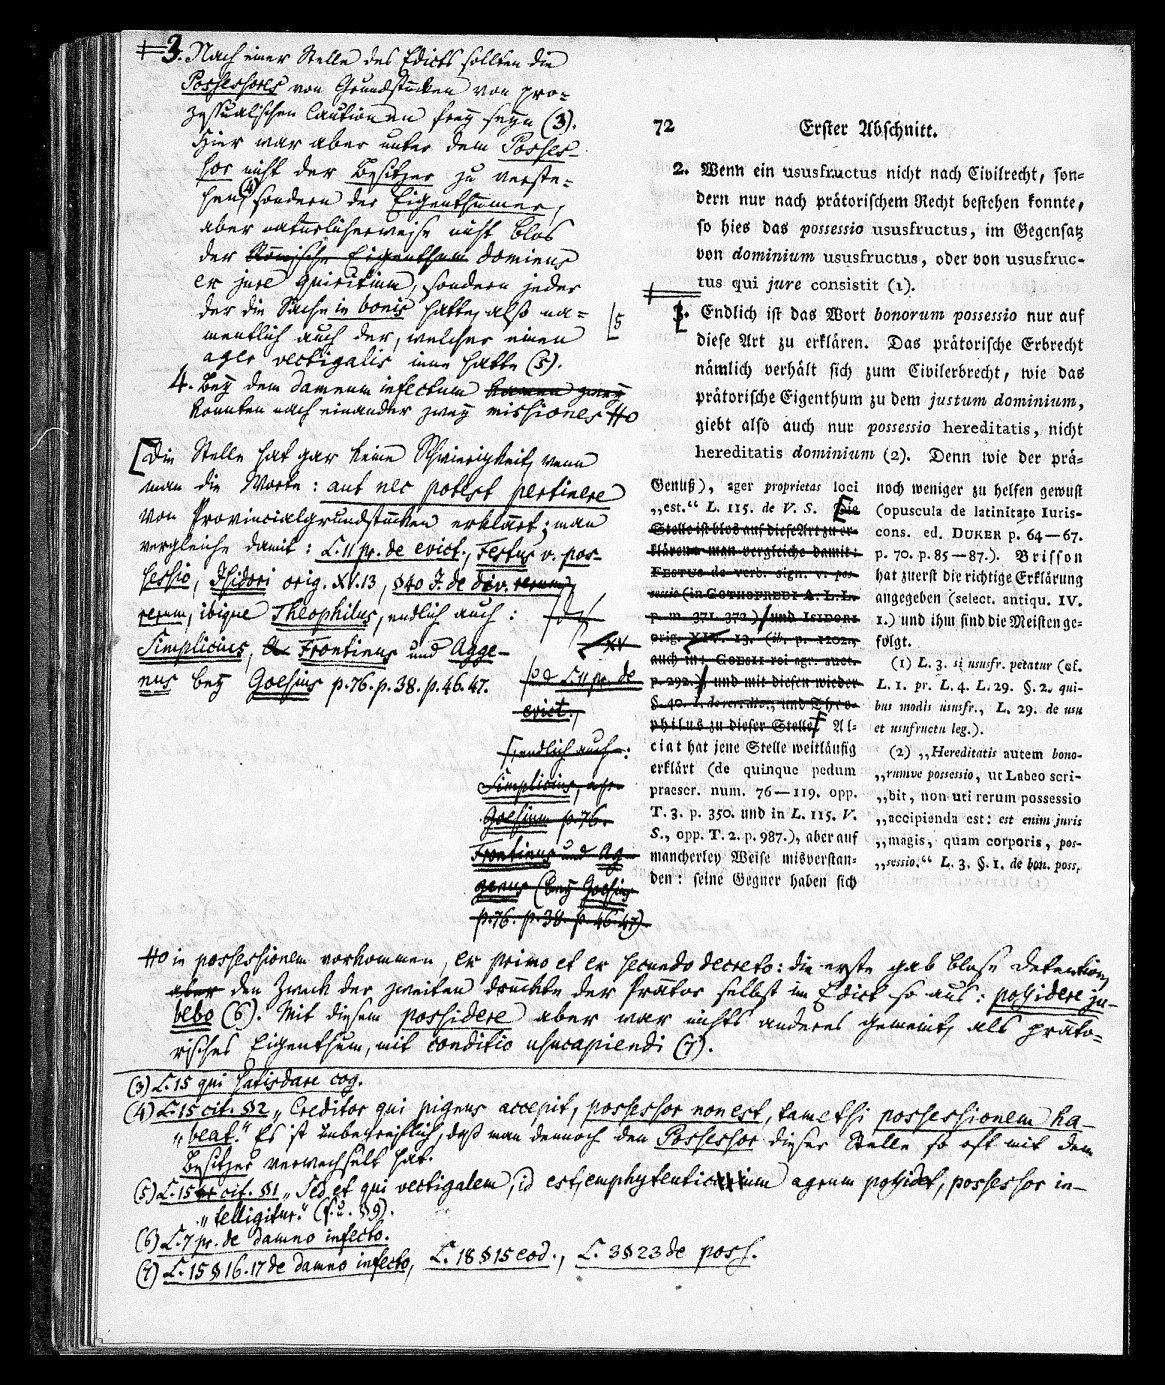 3. Nach einer Stelle des Edicts sollten die
Possessores von Grundstücken von pro=
zessualischen Cautionen frey seyn (3).
Hier war aber unter dem Posses-
sor nicht der Besitzer zu verste=
hen (4), sondern der Eigenthümer,
aber natürlicherweise nicht blos
der Römische Eigenthum dominus
ex jure quiritium, sondern jeder
der die Sache in bonis hatte, also na=
mentlich auch der, welcher einen
ager vectigalis inne hatte (5).
4. Bey dem damnum infectum kamen zwey
konnten nach einander zwey missiones #o
[Die Stelle hat gar keine Schwierigkeit, wenn
man die Worte: aut nec potest pertinere
von Provincialgrundstücken erklärt; man
vergleiche damit: L. 11 pr. de evict., Festus v. pos-
sessio, Isidori orig. XV. 13, §40 I. de div. rerum
rerum, ibique Theophilus, endlich auch:
Simplicius, Frontinus und Agge-
nus bey Goesius p. 76. p. 38. p. 46. 47.
XV
und L. 11 pr. de
evict.,
endlich auch:
Simplicius,
Goesium p. 76.
Frontinus und Ag-
genus (bey Goesius
p. 76. p. 38. p. 46. 47)
72 Erster Abschnitt.
2. Wenn ein ususfructus nicht nach Civilrecht, son=
dern nur nach prätorischem Recht bestehen konnte,
so hies das possessio ususfructus, im Gegensatz
von dominium ususfructus, oder von ususfruc-
tus qui jure consistit (1).
[5
3. Endlich ist das Wort bonorum possessio nur auf
diese Art zu erklären. Das prätorische Erbrecht
nämlich verhält sich zum Civilerbrecht, wie das
prätorische Eigenthum zu dem justum dominium,
giebt also auch nur possessio hereditatis, nicht
hereditatis dominium (2). Denn wie der prä=
Genuß), ager proprietas loci
„est.“ L. 115. de V. S. Die
Stelle ist blos auf diese Art zu er=
klären: man vergleiche damit:
FESTUS de verb. sign. v. pos-
sessio (in GOTHOFREDI A. L. L.
p. m. 371. 372.) und ISIDORI
orig. XIV. 13. (ib. p. 1202.,
auch in: GOESII rei agr. auct.
p. 292.), und mit diesen wieder
§. 40. I. de rer. div., und Theo=
philus zu dieser Stelle. Al=
ciat hat jene Stelle weitläufig
erklärt (de quinque pedum
praescr. num. 76—119. opp.
T. 3. p. 350. und in L. 115. V.
S., opp. T. 2. p. 987.), aber auf
mancherley Weise misverstan=
den: seine Gegner haben sich
noch weniger zu helfen gewußt
(opuscula de latinitate Iuris-
cons. ed. DUKER p. 64—67.
p. 70. p. 85—87.). Brisson
hat zuerst die richtige Erklärung
angegeben (select. antiqu. IV.
1.) und ihm sind die Meisten ge=
folgt.
(1) L. 3. si ususfr. petatur (cf.
L. 1. pr. L. 4. L. 29. §. 2. qui-
bus modis ususfr., L. 29. de usu
et usufructu leg.).
(2) „Hereditatis autem bono-
„rumve possessio, ut Labeo scri-
„bit, non uti rerum possessio
„accipienda est: est enim juris
„magis, quam corporis, pos-
„sessio.“ L. 3. §. 1. de bon. poss.
#o in possessionem vorkommen, ex primo et ex secundo decreto: die erste gab blose Detention,
aber den Zweck der zweiten drückte der Prätor selbst im Edict so aus: possidere ju-
bebo (6). Mit diesem possidere aber war nichts anderes gemeint, als präto=
risches Eigenthum, mit conditio usucapiendi (7).
(3) L. 15 qui satisdare cog.
(4) L. 15 cit. §2 „Creditor qui pignus accepit, possessor non est, tametsi possessionem ha-
„beat.“ Es ist unbegreiflich, daß man dennoch den Possessor dieser Stelle so oft mit dem
Besitzer verwechselt hat.
(5) L. 15 cit. §1 „Sed et qui vectigalem, id est, emphyteuticum agrum possidet, possessor in-
„telligitur.“ (s. u. §9).
(6) L. 7 pr. de damno infecto.
(7) L. 15 §16. 17 de damno infecto, L. 18 §15 eod., L. 3 §23 de poss.